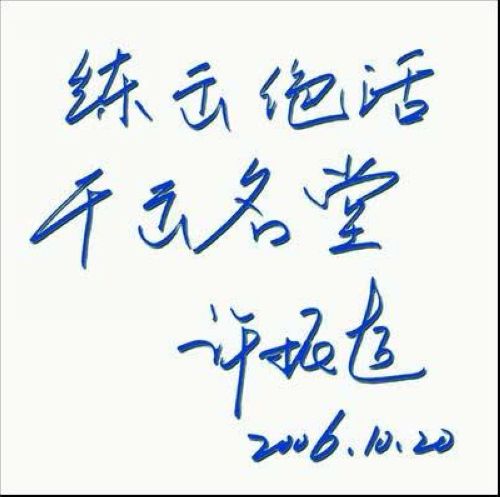 练出绝活
干出名堂
许振超
2006.10.20